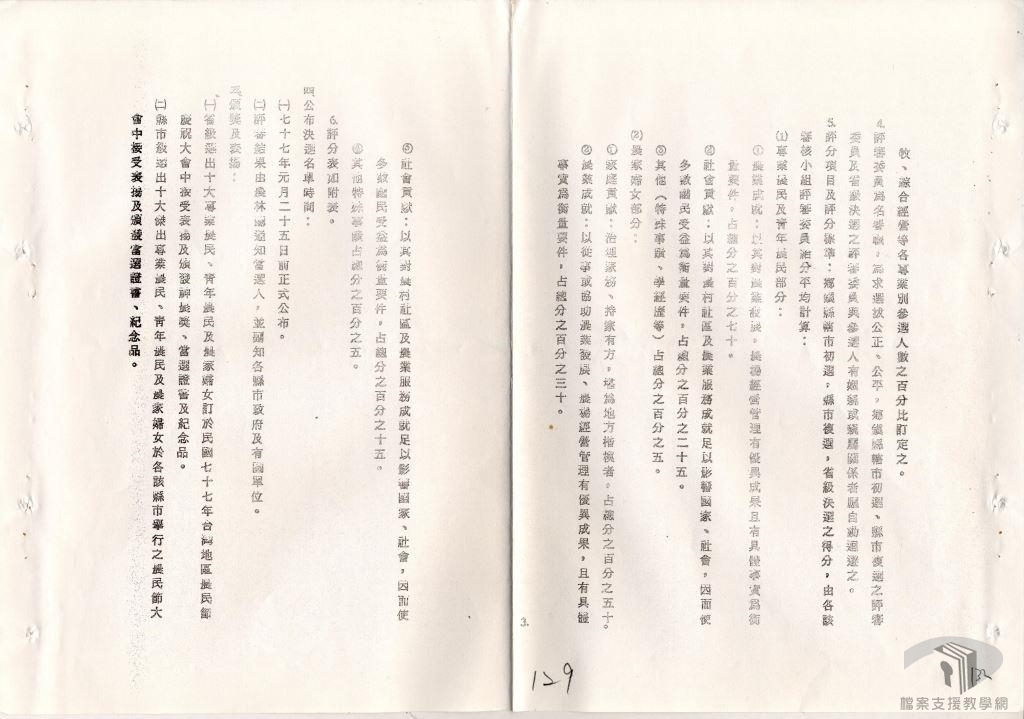 牧、綜合經營等各專業別參選人數之百分比訂定之。
4.評審委員為名譽職,為求選拔公正、公平,鄉鎮縣轄市初選、縣市複選之評審
委員及省級決選之評審委員與參選人有姻親或親屬關係者應自動迴避之。
5.評分項目及評分標準:鄉鎮縣轄市初選,縣市複選,省級決選之得分,由各該
審核小組評審委員給分平均計算:
⑴專業農民及青年農民部分:
①農業成就:以其對農業發展,農場經營管理有優異成果且有具體事實為衡
量要件,占總分之百分之七十。
②社會貢獻:以其對農村社區及農業服務成就足以影響國家、社會,因而使
多數國民受益為衡量要件,占總分之百分之二十五。
③其他(特殊事蹟、學經歷等)占總分之百分之五。
⑵農家婦女部分:
①家庭貢獻:治理家務、持家有方,堪為地方楷模者,占總分之百分之五十。
②農業成就:以從事或協助農業發展、農場經營管理有優異成果,且有具體
事實為衡量要件,占總分之百分之三十。
3.
129
③社會貢獻:以其對農村社區及農業服務成就足以影響國家、社會,因而使
多數國民受益為衡量要件,占總分之百分之十五。
④其他特殊事蹟占總分之百分之五。
6.評分表如附表。
四、公布決選名單時間:
㈠七十七年元月二十五日前正式公布。
㈡評審結果由農林廳通知當選人,並函知各縣市政府及有關單位。
五、頒獎及表揚:
㈠省級選出十大專業農民、青年農民及農家婦女訂於民國七十七年台灣地區農民節
慶祝大會中接受表揚及頒發神農獎、當選證書及紀念品。
㈡縣市級選出十大傑出專業農民、青年農民及農家婦女於各該縣市舉行之農民節大
會中接受表揚及頒發當選證書、紀念品。
檔案支援教學網